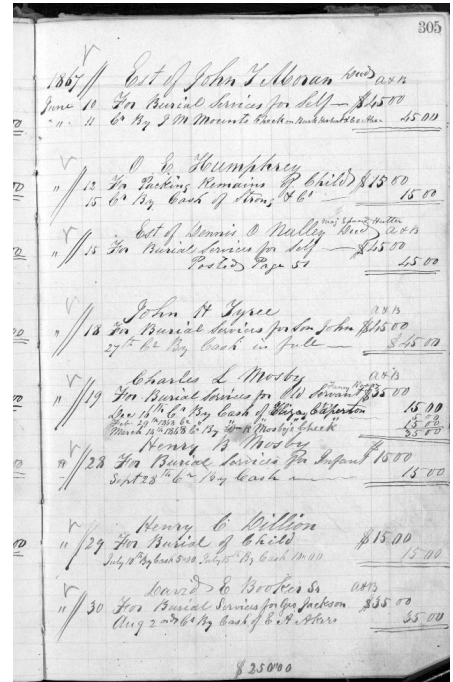 305
1867 Est of John T Moran Decd A&B
June 10 For Burial Services for Self $45 00
" 11 Cr By J M Mounts Check 45 00
O E Humphrey
" 12 For Packing Remains of Child $15 00
15 Cr By Cash of Strong & Co 15 00
Maj Edward Hutter
Est of Dennis O Nalley Decd A&B
" 15 For Burial Services for Self $45 00
Posted Page 51 45 00
John H Tyree A&B
" 18 For Burial Services for Son John $45 00
27th Cr By Cash in full $45 00
Charles L Mosby A&B
" 19 For Burial Services for Old Servant $35 00
Dec 16th Cr By Cash of Eliza Caperton 15 00
Feb 29th 1868 Cr 5 00
March 14th 1868 Cr By Wm R Mosby's Check 15 00
35 00
Henry B Mosby
" 28 For Burial Services for Infant $15 00
Sept 28th Cr By Cash 15 00
Henry C Dillion
" 29 For Burial of Child $15 00
July 10th By Cash 5.00 July By Cash 10.00 15 00
David E Booker Sr A&B
" 30 For Burial Services for Geo Jackson $35 00
Aug 2nd Cr By Cash of E A Akers 35 00
$250 00